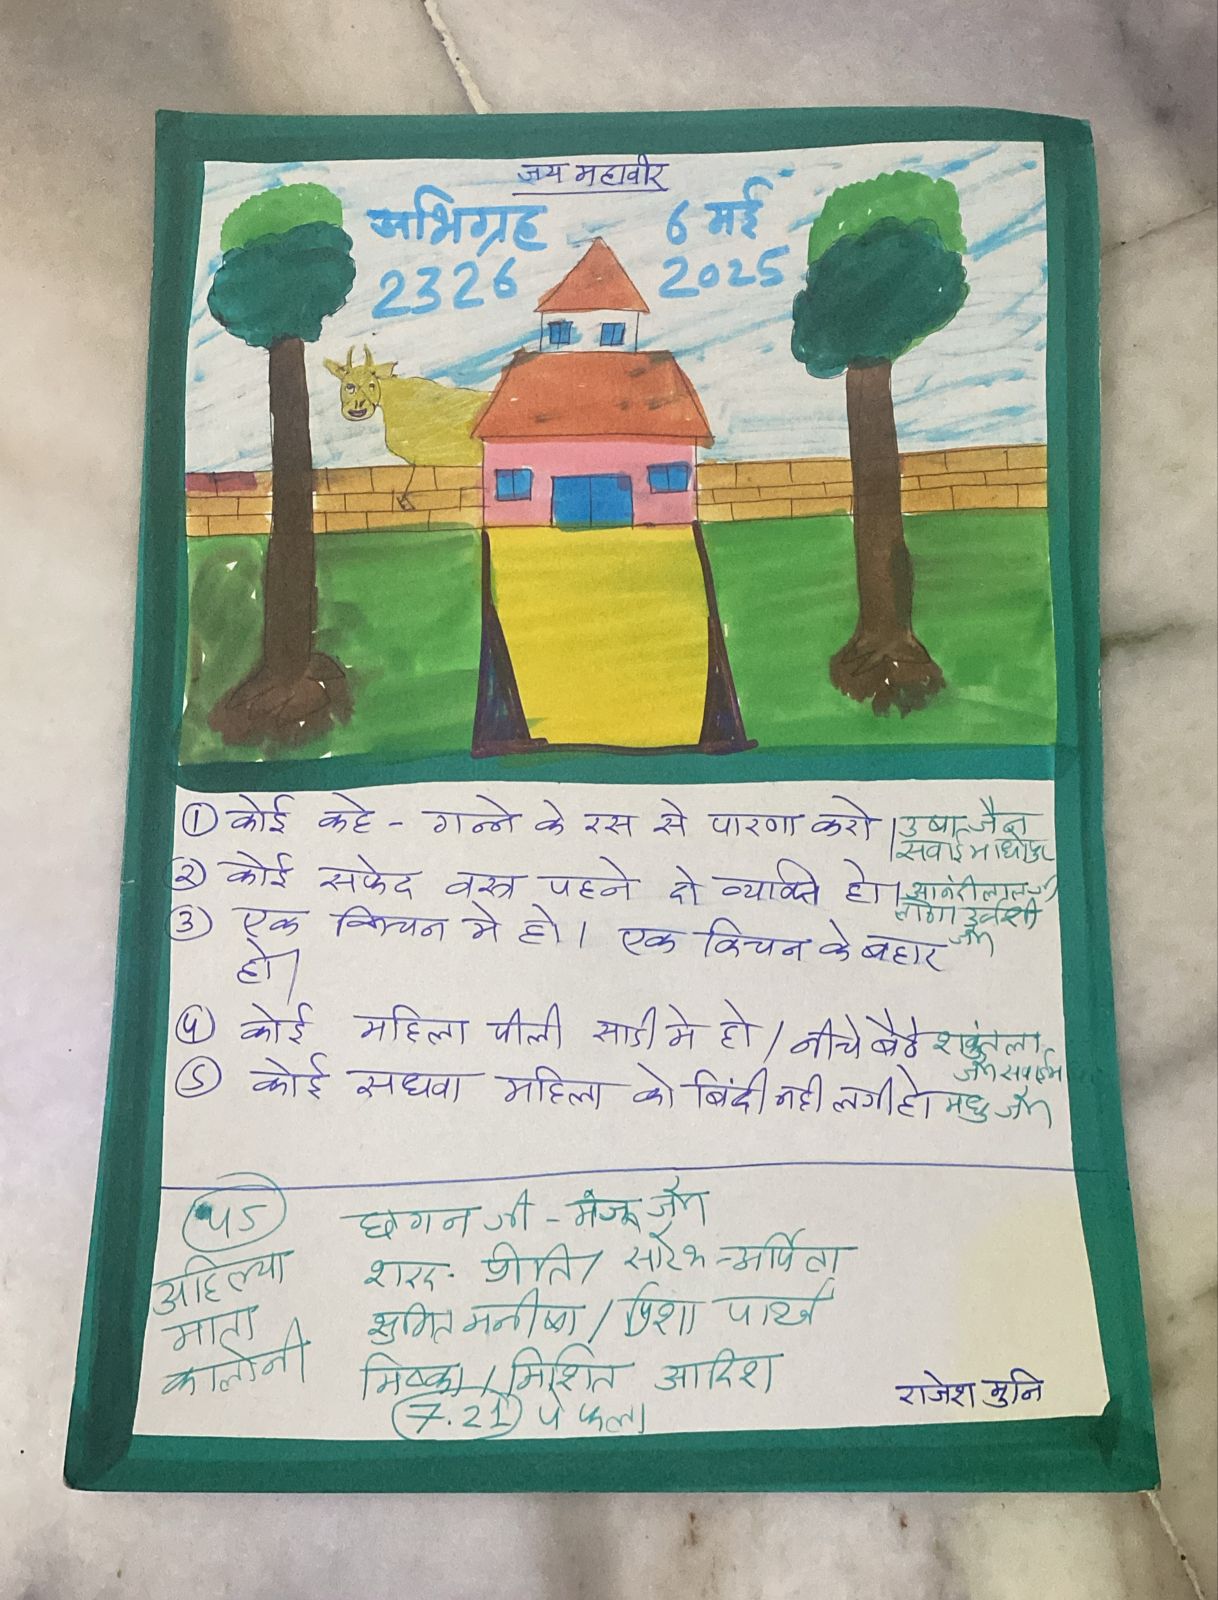 जय महावीर
अभिग्रह 6 मई
2326 2025
① कोई कहे - गन्ने के रस से पारणा करो । उषा जैन
सवाई माधोपुर
② कोई सफेद वस्त्र पहने दो व्यक्ति हो। आनंदीलाल जी
उर्वशी
जैन
③ एक किचन मे हो। एक किचन के बहार
हो।
④ कोई महिला पीली साडी मे हो / नीचे बैठे शकुंतला
जैन
⑤ कोई सधवा महिला को बिंदी नही लगी हो मधु जैन
छगन जी - मंजू जैन
अहिल्या
माता
कालोनी
शरद - प्रीति / अर्पिता
सुमित मनीषा /
मिष्का /
7.21 पे फला
राजेश मुनि